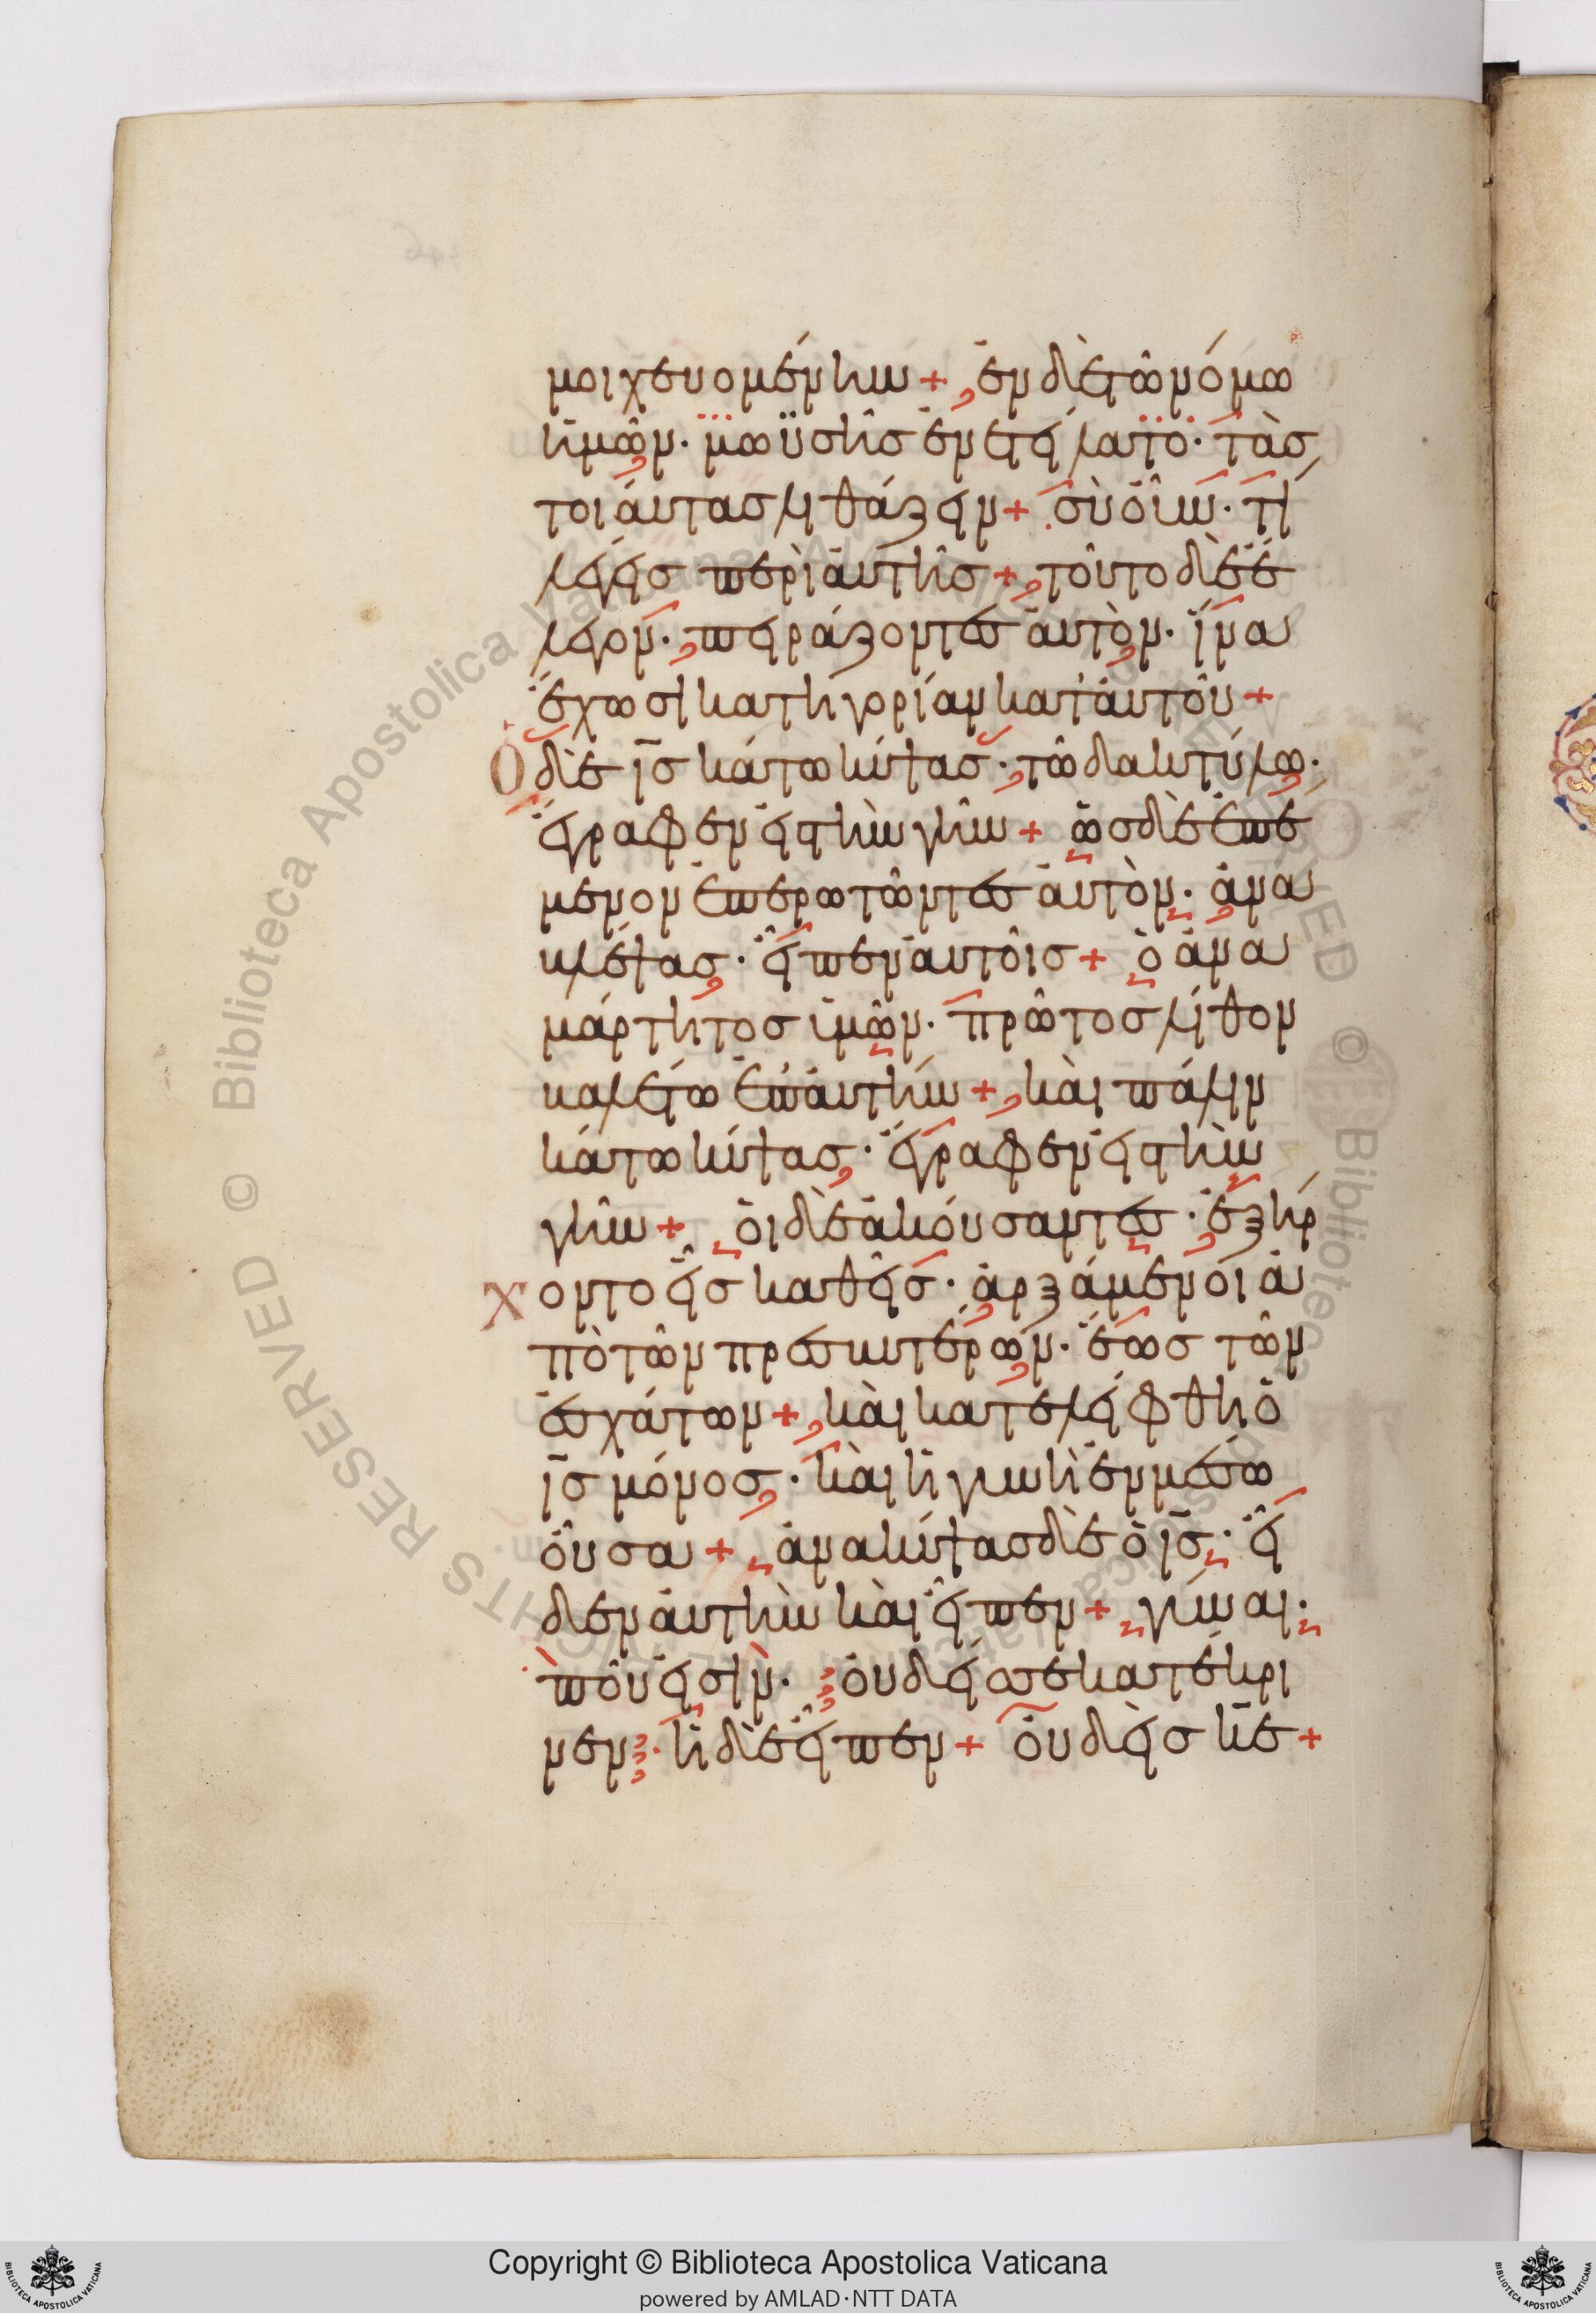 μοιχευομένην + ἐν δὲ τῶ νόμω
ἡμῶν· μωϋσῆς ἐνετείλατο· τὰς
τοιάυτας λιθάζειν + σὺ ὀῦν· τί
λέγεις περὶ ἀυτῆς + τοῦτο δὲ ἔ
λεγον· πειράζοντες ἀυτὸν· ἵνα
ἔχωσι κατηγορίαν κατ' ἀυτοῦ +
Ὁ δὲ ις κάτω κύψας· τῶ δακτύλω·
ἔγραφεν εἰς τὴν γῆν + ὡς δὲ ἐπέ
μενον ἐπερωτῶντες ἀυτὸν· ἀνα
κλέψας· εἶπεν ἀυτοῖς + ὁ ἀνα
μάρτητος ὑμῶν· πρῶτος λίθον
καλέτω ἐπ' ἀυτήν + καὶ πάλιν
κάτω κύψας· ἔγραφεν εἰς τὴν
γῆν + ὁι δὲ ἀκόυσαντες· ἐξήρ
χοντο εἶς καθεῖς· ἀρξάμενοι ἀ
πὸ τῶν πρεσκυτέρων· ἕως τῶν
ἐσχάτων + καὶ κατελείφθη ὁ
ις μόνος· καὶ ἡ γυνὴ ἐν μέσω
ὀῦσα + ἀνακύψας δὲ ὁ ις· εἶ
δεν ἀυτὴν καὶ εἶπεν + γύναι·
ποῦ εἰσὶν· ὀυδείς σε κατέκρι
νεν· ἡ δὲ εἶπεν + ὀυδεὶς κε +
Copyright © Biblioteca Apostolica Vaticana
powered by AMLAD·NTT DATA